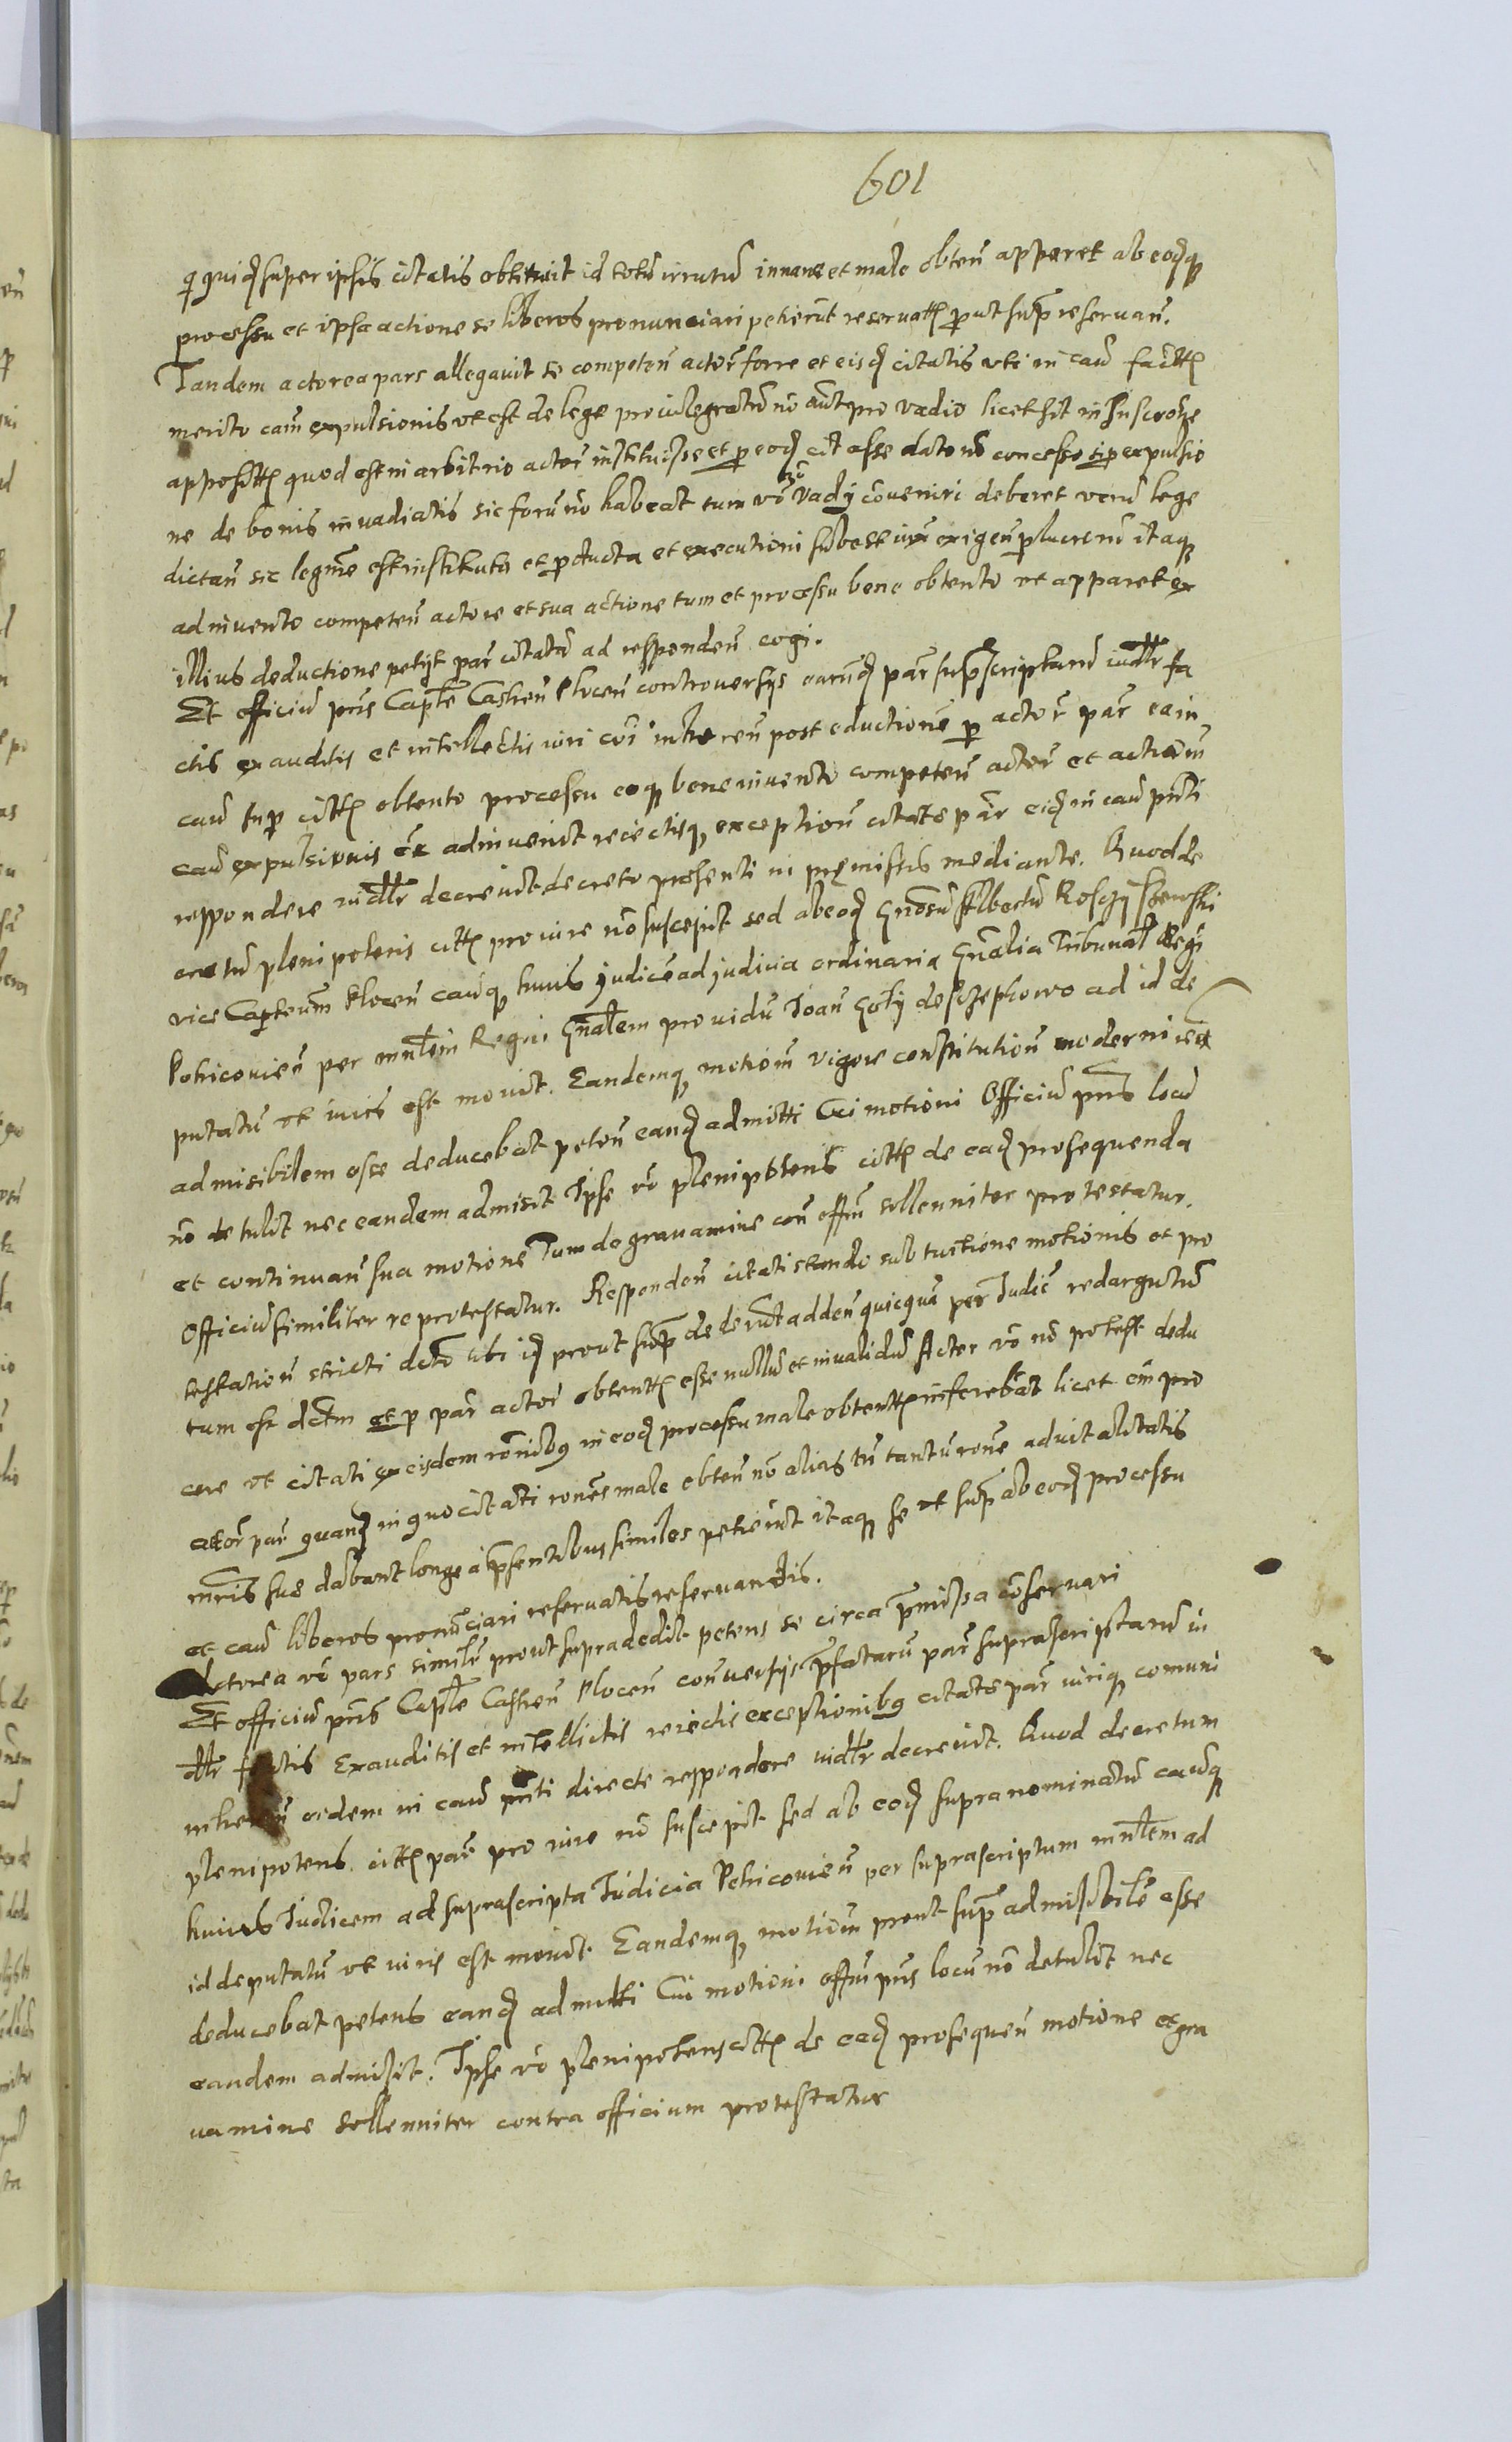 601
quicq super ipsis citatis obtinuit id totu irritu innane et male obten apparet ab eoq
processu et ipsa actione se liberos pronunciari petierut reservat prout supr reservan.
Tandem actorea pars allegavit se competen actore forre et eisd citatis uti in cau
merito cam expulsionis ut est de lege no aut pro vadio licet sit in
apposit quod est in arbitrio actor instituisse et p eod cit esse dato concesso expulsio
ne de bonis invadiatis sic foru no habeat tum vo vadij coveniri deberet veru lege
dictan sic legme est instituta et pducta et executioni subest itaq
ad invento competen actore et sua actione tum et processu bene obtento ut apparet ex
illius deductione petijt par citata ad responden cogi.
Et officiu pns Capte Castren Plocen controversijs earud par suprascriptaru iudlr fa
ctis exauditis et intellectis iuri coi inhæren post eductione p actor par ea in
cau sup citt obtento processu eoq bene invento competen actor et action in
cau expulsionis adinvenit reiectisq exception citate par eid in cau pnti
respondere iudlr decrevit decreto presenti in premissis mediante. Quod de
cretu plenipotens citt pro iure no suscepit sed ab eod Gnosu Albertu Kosczyszewski
vice Capteum Plocen cauq huius judice ad judicia ordinaria Gnalia Tribunal Regi
Petricovien per mnlem Regni Gnalem providu Joan Goly de Sczepkowo ad id de
putatu ut iuris est movit. Eandemq motione vigore constitution moderni
admisibilem esse deducebat peten eand admitti Cui motioni Officiu pns locu
no detulit nec eandem admisit Ipse vo plenipotens citt de ead prosequenda
et continuan sua motione Tum de gravamine con offm sollenniter protestatur.
Officiu similiter reprotestatur. Responden citati stando sub tuitione motionis et pro
testation stricti ubi id prout supr dederut adden quicqua per Judic redargutu
tum est dctm et p par actor obtent esse nullu et invalidu Actor vo no potest dedu
cere ut citati ex eisdem ronibq in eod processu male obtent inferebat licet em pro
actor par quand in quo citati rones male obten no alias tn tantu rone advitalitatis
mris sue dabant longe a psentibus similes petierut itaq se ut supr ab eod processu
et cau liberos pronuciari reservatis reservandis.
Actorea vo pars similr prout supra dedit petens se circa pmissa coservari
Et officiu pns Capte Castren Plocen conversijs pfataru par suprascriptaru iu
dlr factis exauditis et intellectis reiectis exceptionibq citate par iuriq comuni
inheren eidem in cau pnti directe respondere iudlr decrevit. Quod decretum
plenipotens citt par pro iure no suscepit sed ab eod supranominatu cauq
huius Judicem ad suprascripta Judicia Petricovien per suprascriptum mnlem ad
id deputatu ut iuris est movit. Eandemq motione prout supr admisibile esse
deducebat petens eand admitti Cui motioni offm pns locu no detulit nec
eandem admisit. Ipse vo plenipotens citt de ead prosequen motione et gra
vamine sollenniter contra officium protestatur